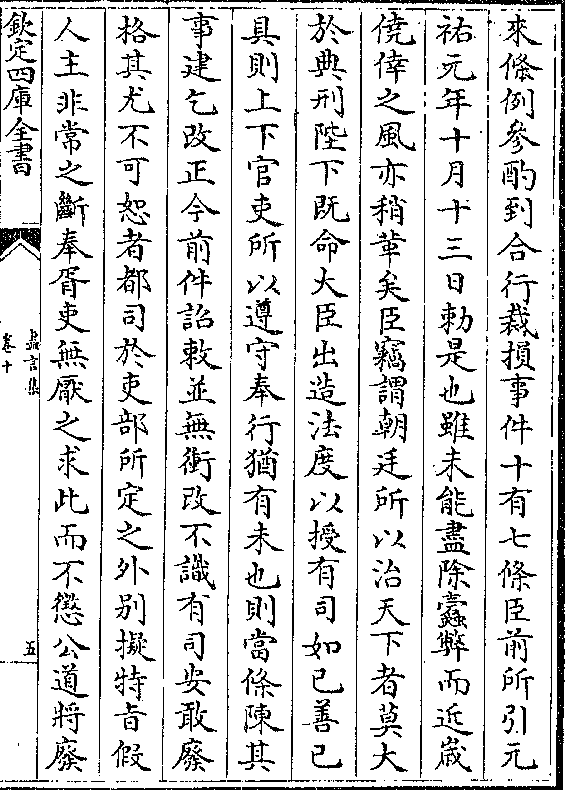 來條例參酌到合行裁損事件十有七條臣前所引元
祐元年十月十三日勅是也雖未能盡除蠧弊而近嵗
僥倖之風亦稍革矣臣竊謂朝廷所以治天下者莫大
於典刑陛下既命大臣出造法度以授有司如已善已
具則上下官吏所以遵守奉行猶有未也則當條陳其
事建乞改正今前件詔敕並無衝改不識有司安敢廢
格其尤不可恕者都司於吏部所定之外别擬特㫖假
人主非常之斷奉胥吏無厭之求此而不懲公道將廢
欽定四庫全書
盡言集
卷十
五